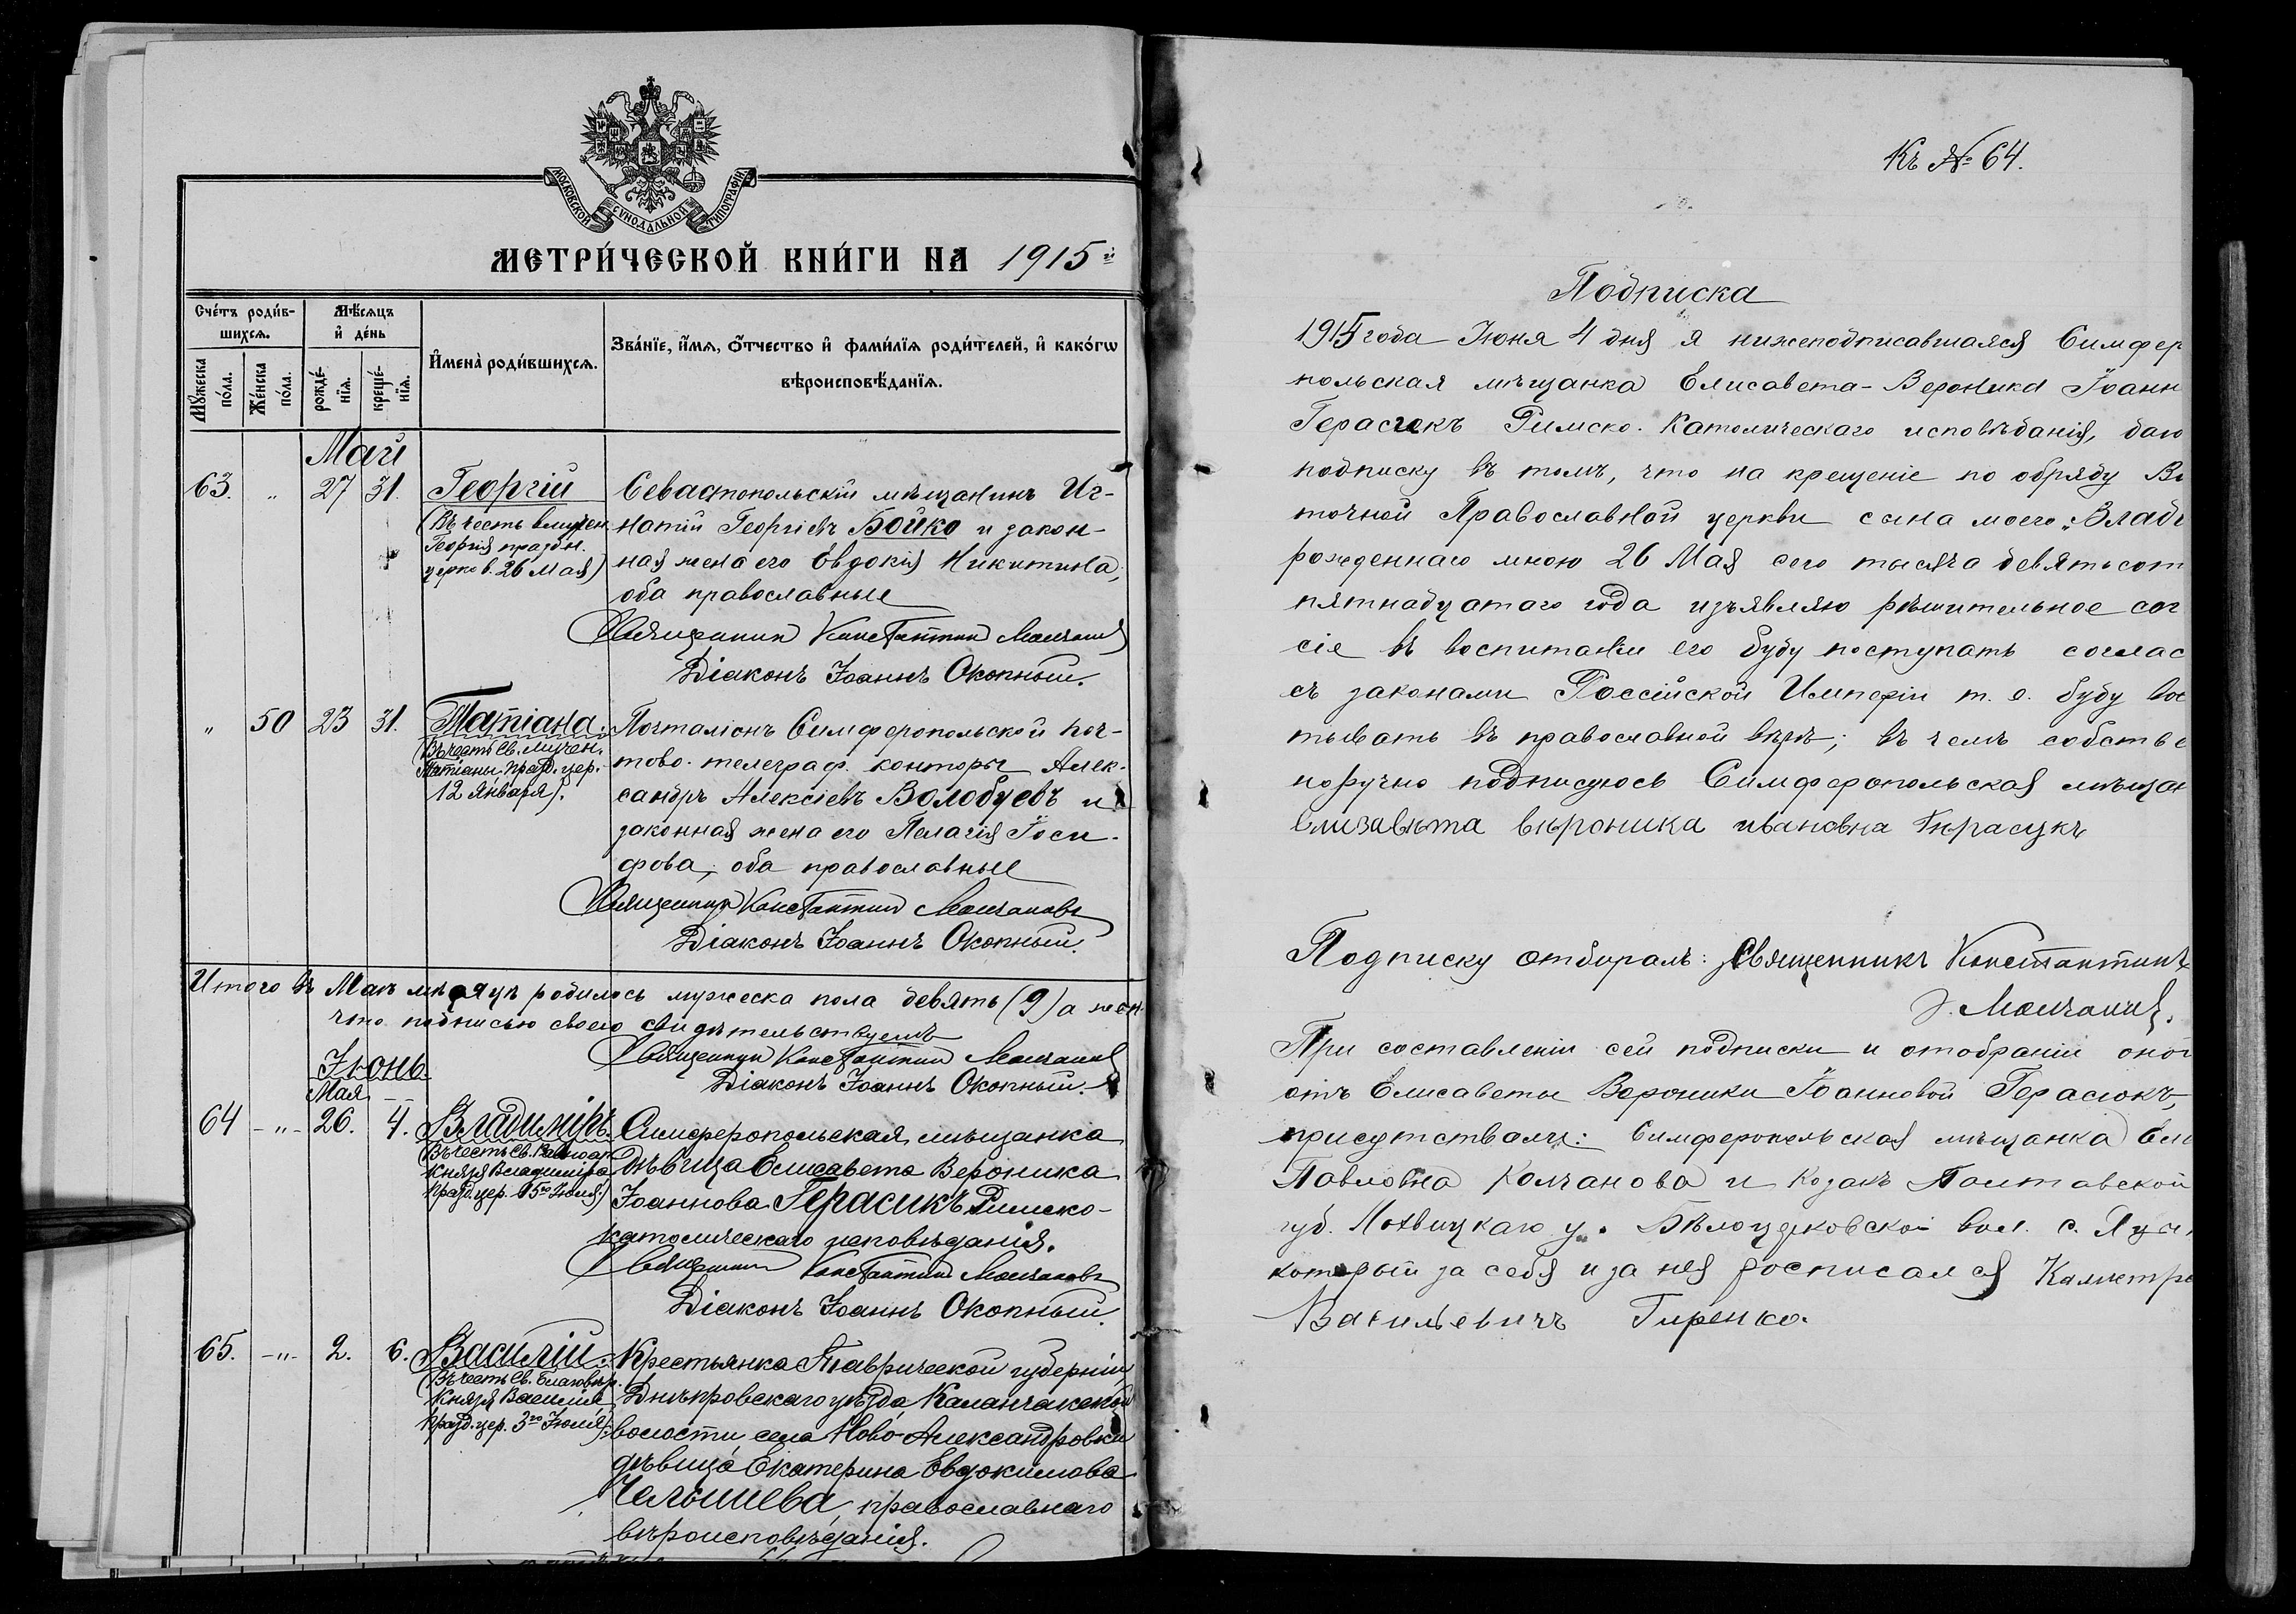 МОСКОВСКОЙ СѴНОДАЛЬНОЙ ТИПОГРАФІИ
МЕТРИ́ЧЕСКОЙ КНИ́ГИ НА 1915й
Сче́тъ роди́в-
шихсѧ.
Мѣ́сѧцъ
и҆ де́нь
И҆мена̀ роди́вшихсѧ.
Зва́нїе, и҆́мѧ, ѻ҆́тчество и҆ фами́лїѧ роди́телей, и҆ како́гѡ
вѣроисповѣ́данїѧ.
Мꙋ́жеска
по́ла.
Же́нска
по́ла.
рожде́-
нїѧ.
креще́-
нїѧ.
Май
63. " 27 31. Георгій
(Въ честь вмучен
Георгія праздн.
церков. 26 Мая)
Севастопольскій мѣщанинъ Иг-
натій Георгіевъ Бойко и закон-
ная жена его Евдокія Никитина,
оба православные
Священникъ Константинъ Молчановъ
Діаконъ Іоаннъ Окопный.
" 50 23 31. Татіана.
(Въ честь Св. мучен.
Татіаны, празд. цер.
12 Января).
Почталіонъ Симферопольской поч-
тово-телеграф. конторы Алек-
сандръ Алексіевъ Володуевъ и
законная жена его Пелагія Іоси-
фова, оба православные
Священникъ Константинъ Молчановъ
Діаконъ Іоаннъ Окопный.
Итого въ Маѣ мѣсяцѣ родилось мужеска пола девять (9) а женс
что подписью своею свидѣтельствуемъ
Священникъ Константинъ Молчановъ
Діаконъ Іоаннъ Окопный.
Іюнь
Мая
64 -"- 26. 4. Владиміръ.
(Въ честь Св. Равноап.
Князя Владиміра
празд. цер. 15го Іюля.)
Симферопольская мѣщанка
дѣвица Елисавета Вероника
Іоаннова Герасикъ Римско-
католическаго исповѣданія.
Священникъ Константинъ Молчановъ
Діаконъ Іоаннъ Окопный.
65. -"- 2. 6. Василій.
(Въ честь Св. Благовѣр.
Князя Василія
празд. цер. 3го Іюля).
Крестьянка Таврической губерніи,
Днѣпровскаго уѣзда Каланчакской
волости, села Ново-Александровки
дѣвица Екатерина Евдокимова
Челышева, православнаго
вѣроисповѣданія.
Къ № 64.
Подписка
1915 года Іюня 4 дня я нижеподписавшаяся Симфер
польская мѣщанка Елисавета-Вероника Іоанн
Герасюкъ Римско-Католическаго исповѣданія, даю
подписку въ томъ, что на крещеніе по обряду Во
точной Православной церкви сына моего „Влади
рожденнаго мною 26 Мая сего тысяча девятьсот
пятнадцатаго года изъявляю рѣшительное сог
сіе въ воспитаніи его буду поступать соглас
съ законами Россійской Имперіи т. е. буду вос
тывать въ православной вѣрѣ; въ чемъ собстве
норучно подписуюсь Симферопольская мѣщан
Елизавѣта вѣроника ивановна Гѣрасукъ
Подписку отбиралъ: Священникъ Константинъ
Молчановъ.
При составленіи сей подписки и отобраніи оной
отъ Елисаветы Вероники Іоанновой Герасюкъ,
присутствовали: Симферопольская мѣщанка Ели
Павловна Колчанова и Козакъ Полтавской
губ. Лохвицкаго у. Бѣлоцерковской вол. с.
который за себя и за нея росписался
Васильевичъ Гиренко.